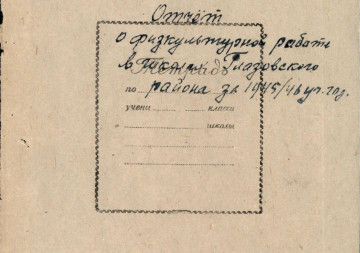 Отчёт
о физкультурной работе
в школах Глазовского
Тетрадь
по района за 1945/46 уч. год.
учени класса
школы